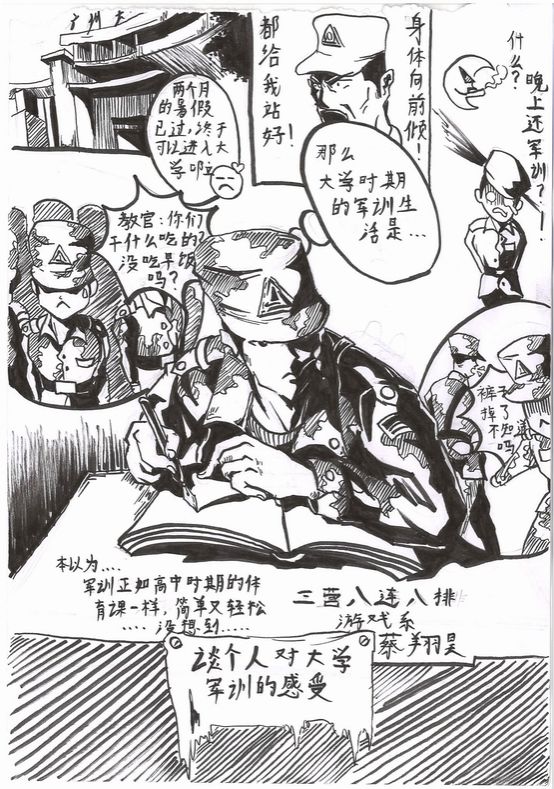 广州大
两个月
的暑假
已过，终于
可以进入大
学啦
都给我站好！
身体向前倾！
什么？
晚上还军训？！
那么
大学时期
的军训生
活是...
教官：你们
干什么吃的？
没吃早饭
吗？
裤子
掉了
不知
吗
本以为....
军训正如高中时期的体
育课一样，简单又轻松
.... 没想到.....
三营八连八排
游戏系
蔡翔昊
谈个人对大学
军训的感受